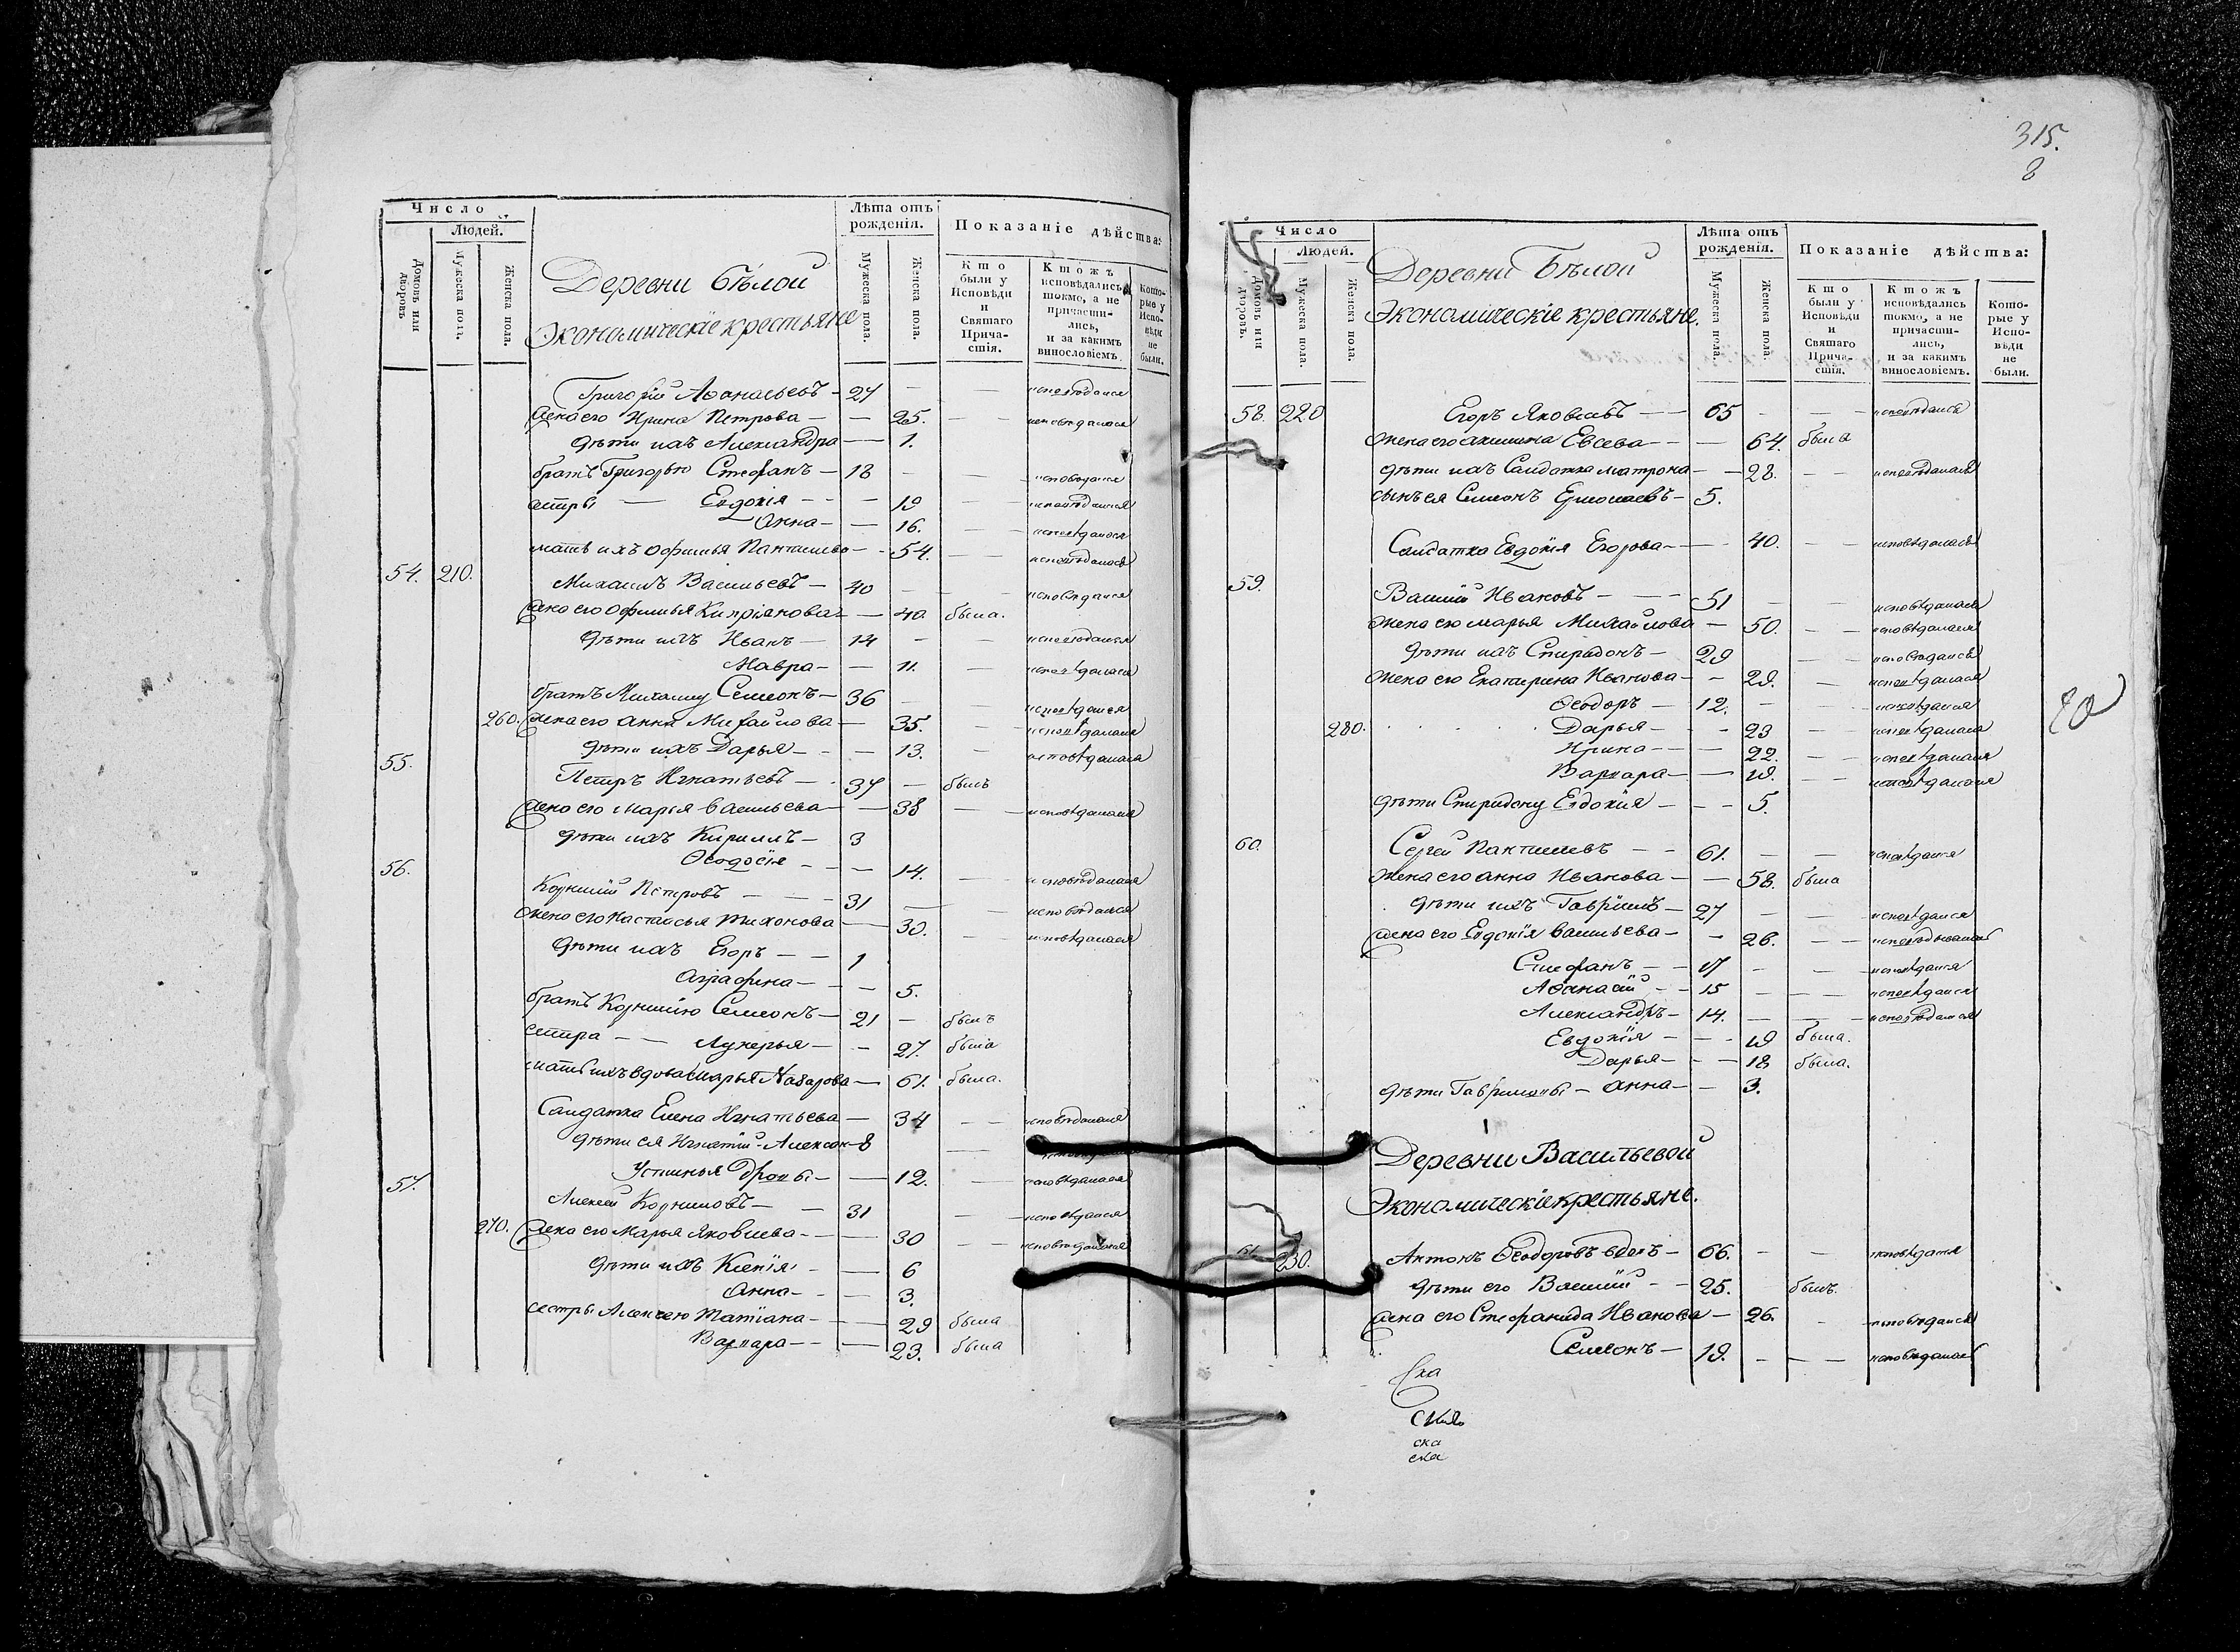 Число
Людей.
Домовъ или дворовъ
Мужеска пола.
Женска пола.
Деревни Бѣлой
Экономическіе крестьяне
Лѣта отъ рожденія.
Мужеска пола.
Женска пола.
Показаніе дѣйства:
Кто были у Исповѣди и Святаго Причастія.
Ктожъ исповѣдались токмо, а не причастились, и за какимъ винословіемъ.
Которые у Исповѣди не были.
Григорій Аѳанасьевъ - 27 — — исповѣдался
жена его Ирина Петрова — — 25. — — исповѣдалася
дѣти ихъ Александра — — 1.
братъ Григорью Стефанъ — 18 — — исповѣдался
сестры — Евдокія — — 19 — — исповѣдалася
Анна — — 16. — — исповѣдалася
мать ихъ Офимья — — 54. — — исповѣдалась
54. 210. Михаилъ Васильевъ — 40 — — исповѣдался
жена его Офимья Кипріянова — — 40 была.
дѣти ихъ Иванъ — 14 — — исповѣдался
Мавра — — 11. — исповѣдалася
братъ Михаилу Семенъ — 36 — исповѣдался
260. жена его Анна Михайлова — 35. — исповѣдалася
дѣти ихъ Дарья — — 13. — исповѣдалася
55. Петръ Игнатьевъ — 37 — былъ
жена его Марья Васильева — — 38 — — исповѣдалася
дѣти ихъ Кириллъ — 3
Ѳеодосія — — 14. — исповѣдалася
56. Корнилій Петровъ — — 31 — — исповѣдался
жена его Настасья Тихонова — 30. — исповѣдалася
дѣти ихъ Егоръ — — 1
Аграфена — — 5.
братъ Корнилію Семенъ — 21 — былъ
сестра — — Лукерья — — 27. была
мать ихъ вдова Марья Назарова — 61. была.
Салдатка Елена Игнатьева — 34 — — исповѣдалася
дѣти ея Игнатій Алексан- 8 —
Устинья дровы — — 12. — исповѣдалася
57. Алексѣй Корниловъ — — 31 — — исповѣдался
270. жена его Марья Яковлева — — 30 — — исповѣдалася
дѣти ихъ Ксенія — — 6
Анна — — 3.
сестры Алексею Татіана — — 29 была
Варвара — — 23. была
315.
8
Число
Людей.
Домовъ или дворовъ.
Мужеска пола.
Женска пола.
Деревни Бѣлой
Экономическіе крестьяне.
Лѣта отъ рожденія.
Мужеска пола.
Женска пола.
Показаніе дѣйства:
Кто были у Исповѣди и Святаго Причастія.
Ктожъ исповѣдались токмо, а не причастились, и за какимъ винословіемъ.
Которые у Исповѣди не были.
58. 220 Егоръ Яковлевъ — — 65 — — исповѣдался
жена его Акилина Евсева — — 64. была
дѣти ихъ Салдатка Матрона — — 28. — — исповѣдалась
сынъ ея Семенъ Ермолаевъ — 5.
Салдатка Евдокія Егорова — — 40. — — исповѣдалась
59. Василій Ивановъ — — 51 — — исповѣдался
жена его Марья Михайлова — 50. — — исповѣдалася
дѣти ихъ Спиридонъ — 29 — — исповѣдался
жена его Екатерина Иванова — — 29. — исповѣдалася
Ѳеодоръ — 12. — — исповѣдался
280. Дарья — — 23 — исповѣдалася
Ирина — — 22. — — исповѣдалася
Варвара — — 19. — — исповѣдалася
дѣти Спиридону Евдокія — — — 5.
60. Сергей — — 61. — — исповѣдался
жена его Анна Иванова — — 58. была
дѣти ихъ Гавріилъ — 27 — — исповѣдался
жена его Евдокія Васильева — — 26. — —
Стефанъ — — 17 — — исповѣдался
Аѳанасій — — 15 — — исповѣдался
Александръ — 14. — — исповѣдался
Евдокія — — 19 была.
Дарья — — — 18 была.
дѣти Гавриловы — Анна — — 3.
Деревни Васильевой
Экономическіе крестьяне.
61 230. Антонъ Ѳеодоровъ вдовъ — 66. — — исповѣдался
дѣти его Василій — — 25. былъ.
жена его Стефанида Иванова — 26. — исповѣдалась
Семенъ — 19. — — исповѣдался
ска
ска